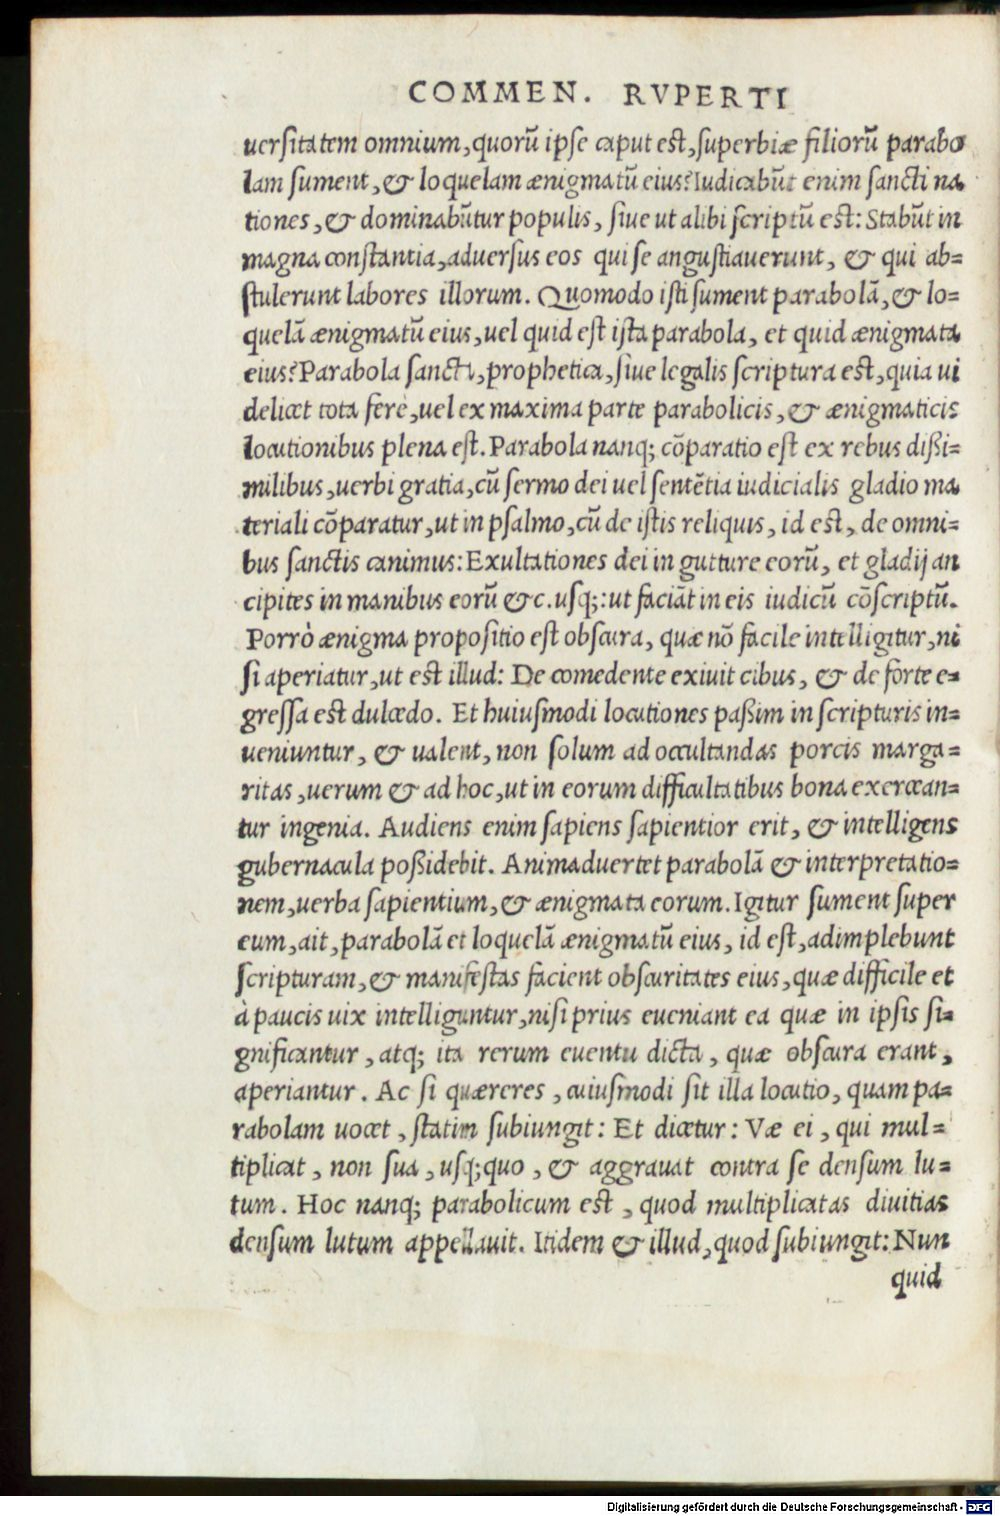 COMMEN. RVPERTI
uersitatem omnium, quorū ipse caput est, superbiæ filiorū parabo
lam sument, & loquelam ænigmatū eius? Iudicabūt enim sancti na
tiones, & dominabūtur populis, siue ut alibi scriptū est: Stabūt in
magna constantia, aduersus eos qui se angustiauerunt, & qui ab=
stulerunt labores illorum. Quomodo isti sument parabolā, & lo=
quelā ænigmatū eius, uel quid est ista parabola, et quid ænigmata
eius? Parabola sancta, prophetica, siue legalis scriptura est, quia ui
delicet tota ferè, uel ex maxima parte parabolicis, & ænigmaticis
locutionibus plena est. Parabola nanq; cōparatio est ex rebus dißi=
milibus, uerbi gratia, cū sermo dei uel sentētia iudicialis gladio ma
teriali cōparatur, ut in psalmo, cū de istis reliquis, id est, de omni=
bus sanctis canimus: Exultationes dei in gutture eorū, et gladij an
cipites in manibus eorū &c. usq;: ut faciāt in eis iudicū cōscriptū.
Porrò ænigma propositio est obscura, quæ nō facile intelligitur, ni
si aperiatur, ut est illud: De comedente exiuit cibus, & de forte e=
gressa est dulcedo. Et huiusmodi locutiones paßim in scripturis in=
ueniuntur, & ualent, non solum ad occultandas porcis marga=
ritas, uerum & ad hoc, ut in eorum difficultatibus bona exercean=
tur ingenia. Audiens enim sapiens sapientior erit, & intelligens
gubernacula poßidebit. Animaduertet parabolā & interpretatio=
nem, uerba sapientium, & ænigmata eorum. Igitur sument super
eum, ait, parabolā et loquelā ænigmatū eius, id est, adimplebunt
scripturam, & manifestas facient obscuritates eius, quæ difficile et
à paucis uix intelliguntur, nisi prius eueniant ea quæ in ipsis si=
gnificantur, atq; ita rerum euentu dicta, quæ obscura erant,
aperiantur. Ac si quæreres, cuiusmodi sit illa locutio, quam pa=
rabolam uocet, statim subiungit: Et dicetur: Væ ei, qui mul=
tiplicat, non sua, usq;quo, & aggrauat contra se densum lu=
tum. Hoc nanq; parabolicum est, quod multiplicatas diuitias
densum lutum appellauit. Itidem & illud, quod subiungit: Nun
quid
Digitalisierung gefördert durch die Deutsche Forschungsgemeinschaft - DFG